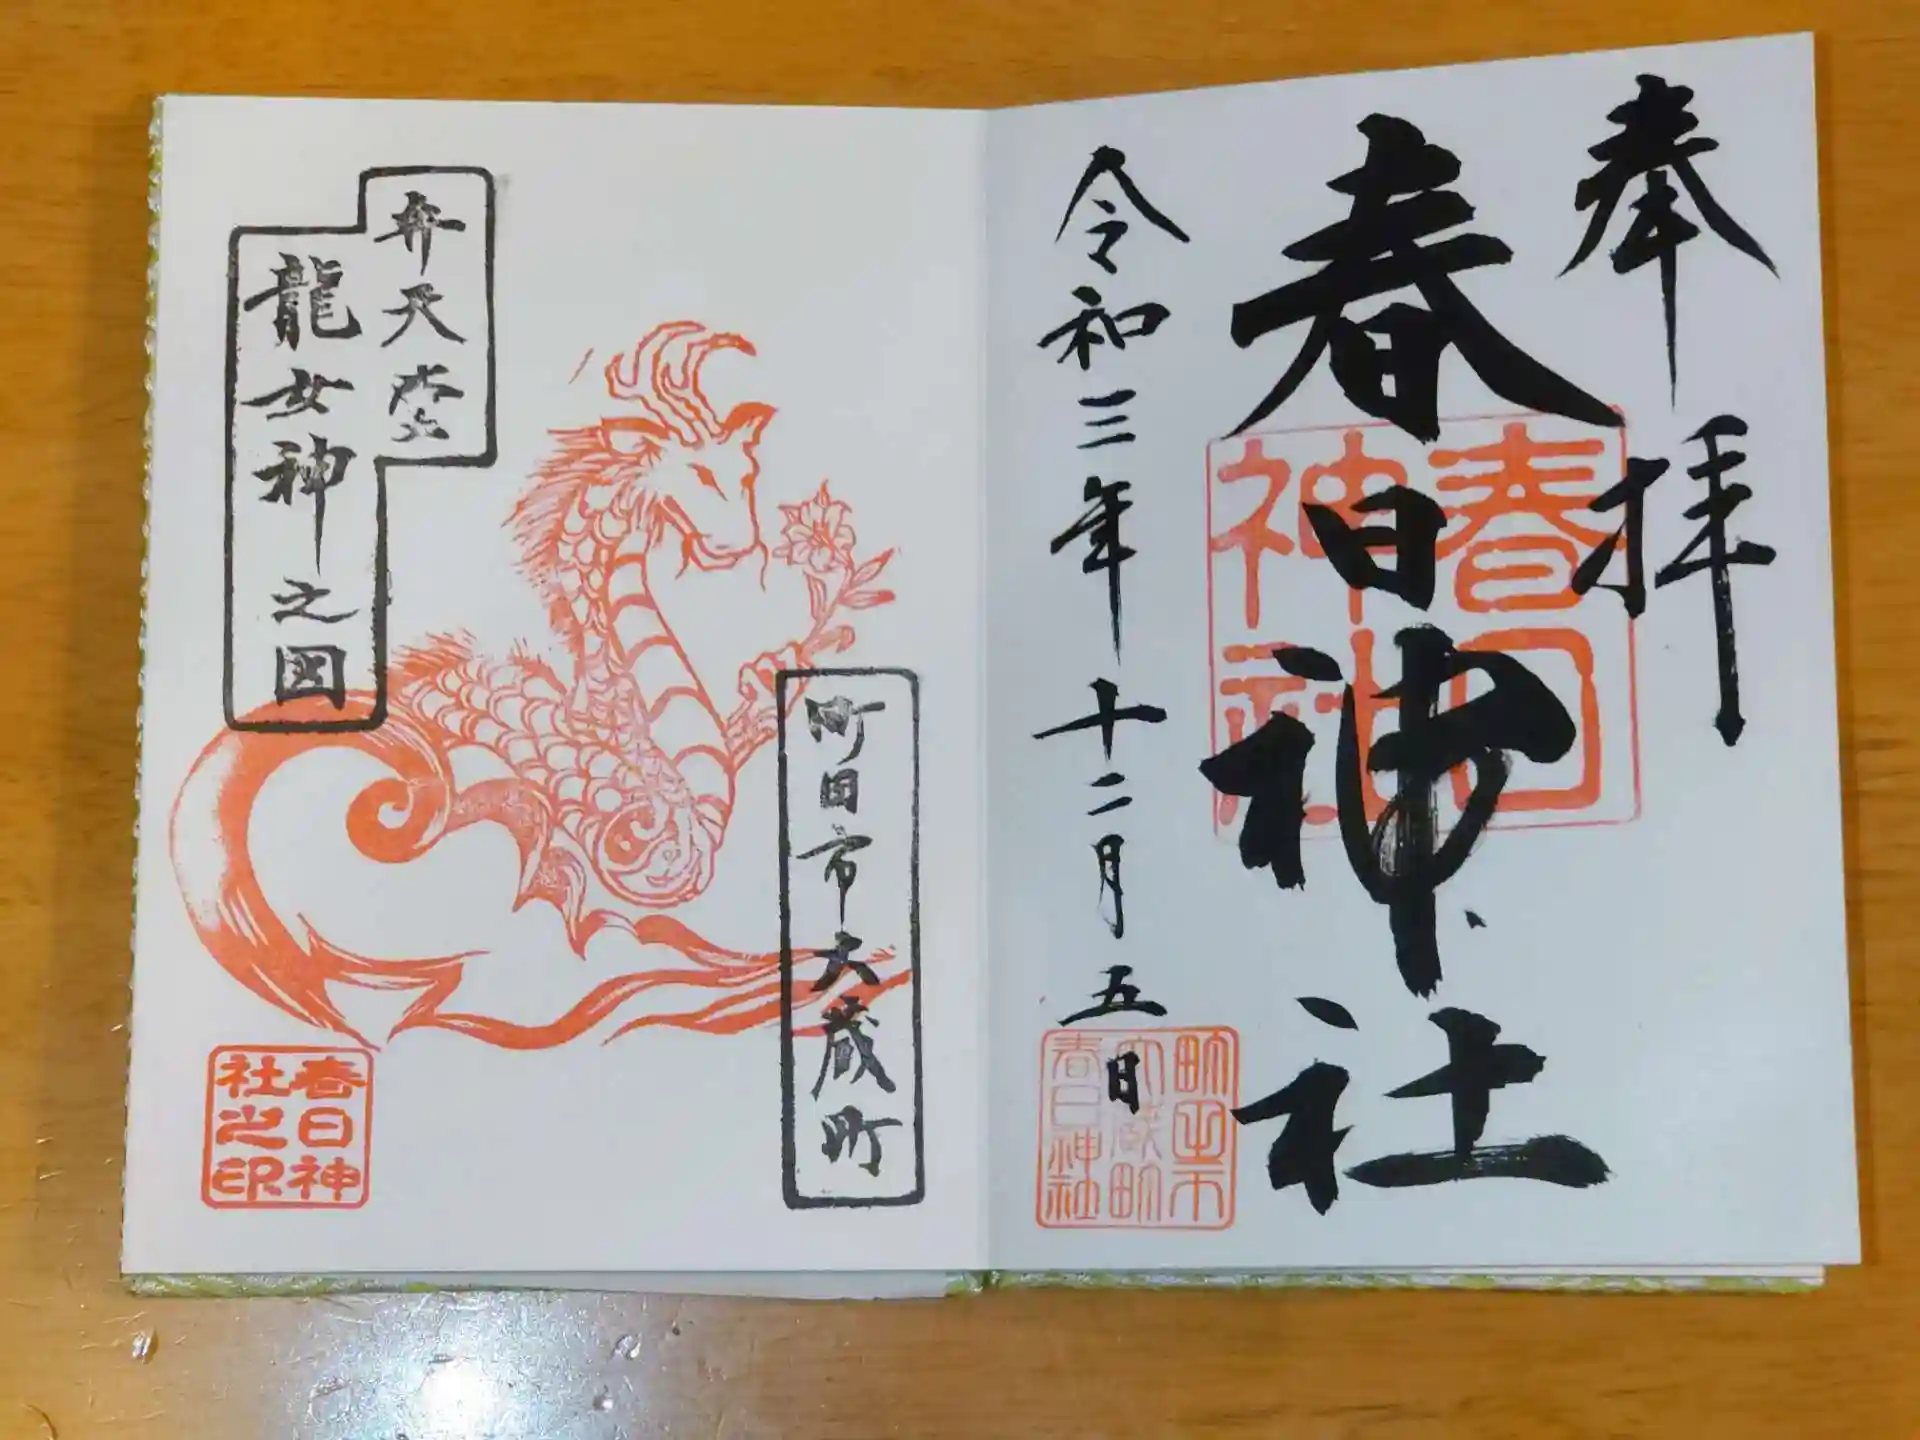 奉拝
春日神社
春日神社
令和三年十二月五日
町田市
大蔵町
春日神社
弁天堂
龍女神之図
町田市大蔵町
春日神
社之印